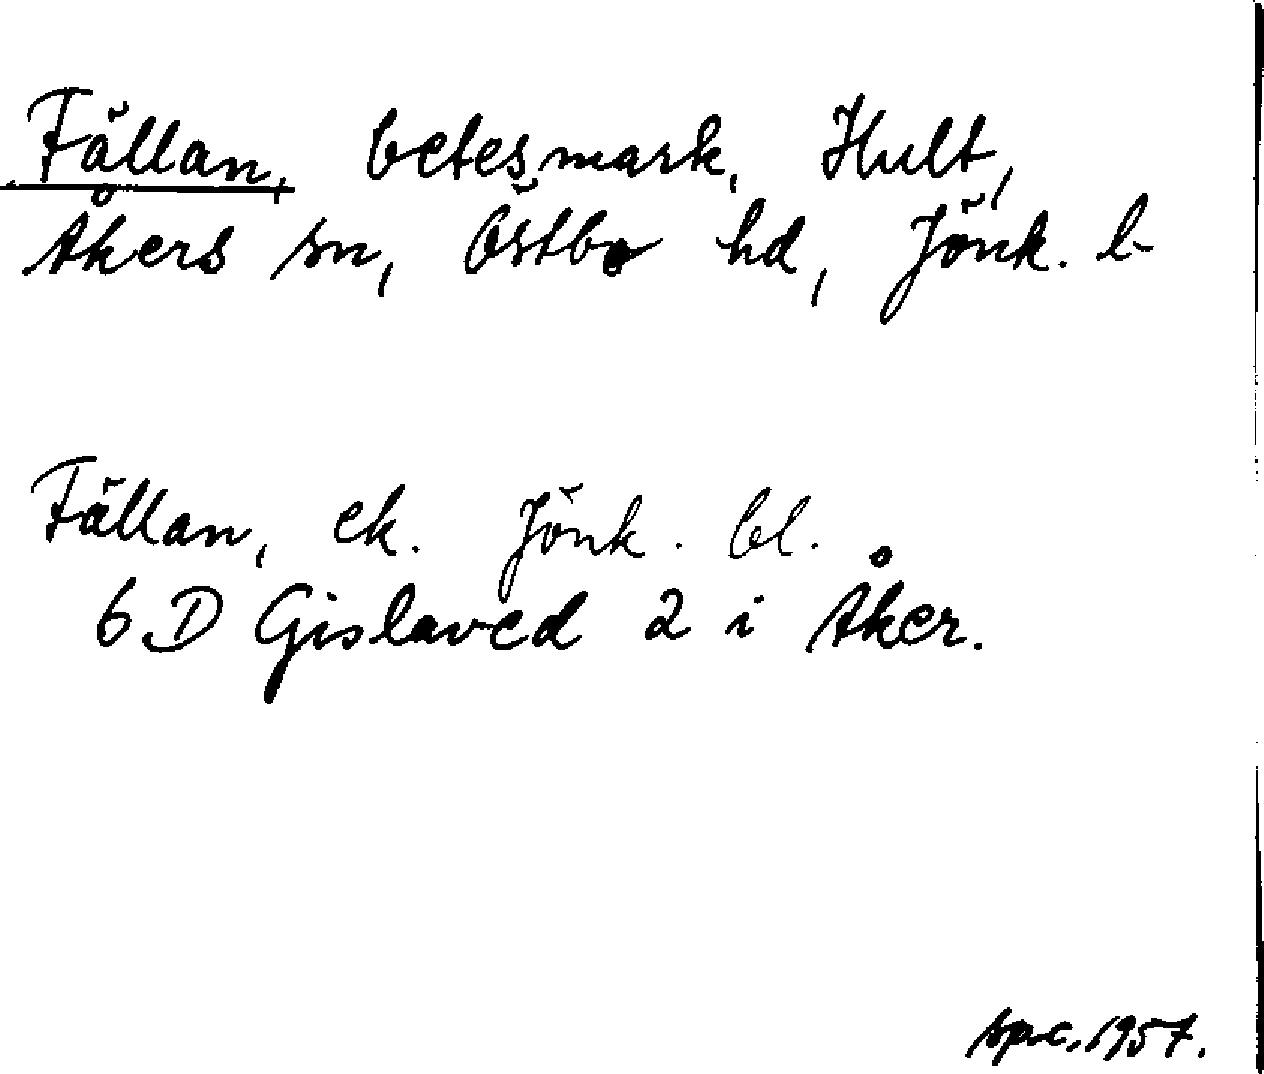 Fällan, betesmark, Hult,
Åkers sn, Östbo hd, Jönk. l-
Fällan, ek. Jönk. bl.
6 D Gislaved 2 i Åker.
1957.